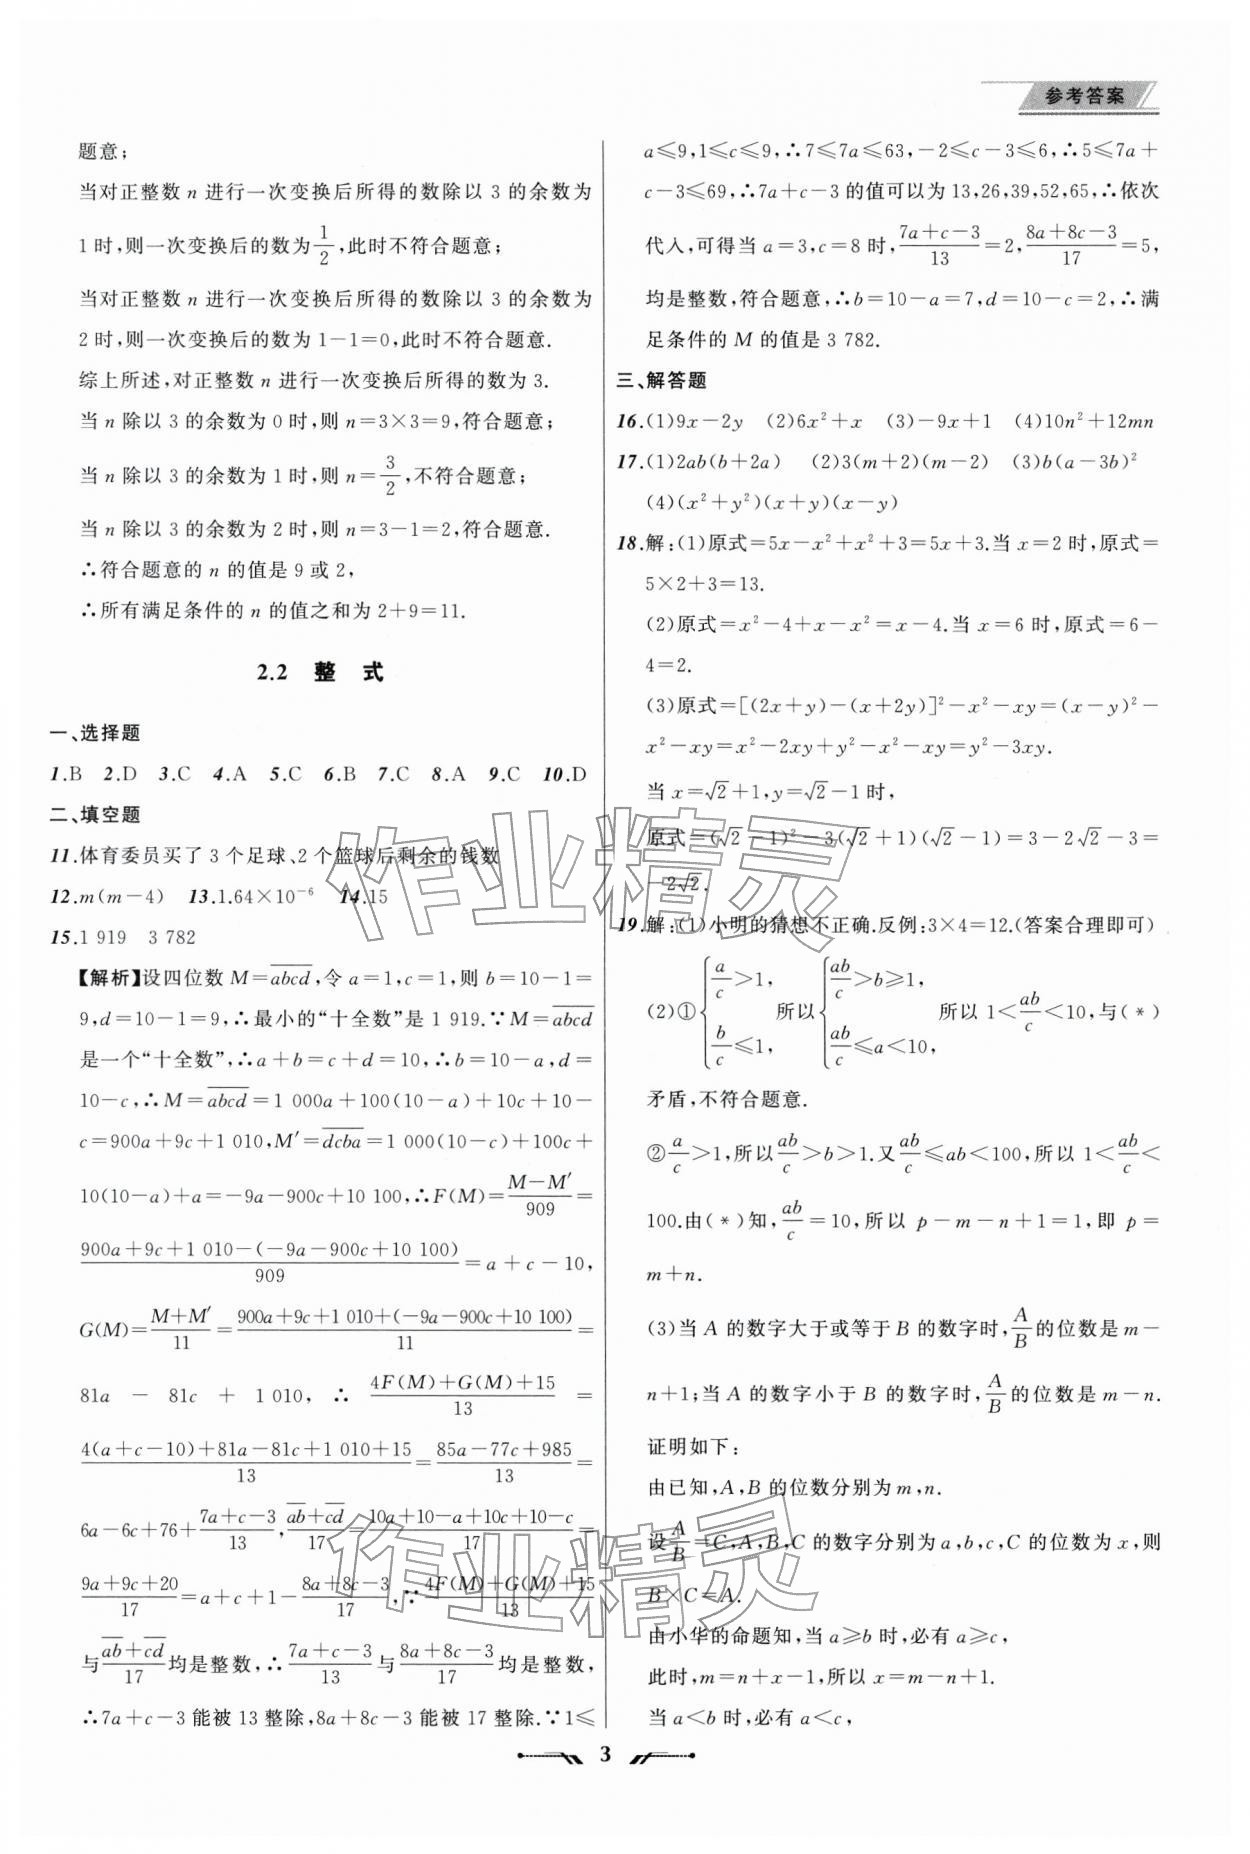 参考答案
题意;
当对正整数 n 进行一次变换后所得的数除以 3 的余数为
1 时,则一次变换后的数为 1/2,此时不符合题意;
当对正整数 n 进行一次变换后所得的数除以 3 的余数为
2 时,则一次变换后的数为 1-1=0,此时不符合题意.
综上所述,对正整数 n 进行一次变换后所得的数为 3.
当 n 除以 3 的余数为 0 时,则 n=3×3=9,符合题意;
当 n 除以 3 的余数为 1 时,则 n=3/2,不符合题意;
当 n 除以 3 的余数为 2 时,则 n=3-1=2,符合题意.
∴符合题意的 n 的值是 9 或 2,
∴所有满足条件的 n 的值之和为 2+9=11.
2.2 整 式
一、选择题
1.B 2.D 3.C 4.A 5.C 6.B 7.C 8.A 9.C 10.D
二、填空题
11.体育委员买了 3 个足球、2 个篮球后剩余的钱数
12.m(m-4) 13.1.64×10⁻⁶ 14.15
15.1 919 3 782
【解析】设四位数 M=\overline{abcd},令 a=1,c=1,则 b=10-1=
9,d=10-1=9,∴最小的“十全数”是 1 919.∵M=\overline{abcd}
是一个“十全数”,∴a+b=c+d=10,∴b=10-a,d=
10-c,∴M=\overline{abcd}=1 000a+100(10-a)+10c+10-
c=900a+9c+1 010,M′=\overline{dcba}=1 000(10-c)+100c+
10(10-a)+a=-9a-900c+10 100,∴F(M)=(M-M′)/909=
(900a+9c+1 010-(-9a-900c+10 100))/909=a+c-10,
G(M)=(M+M′)/11=(900a+9c+1 010+(-9a-900c+10 100))/11=
81a-81c+1 010,∴(4F(M)+G(M)+15)/13=
(4(a+c-10)+81a-81c+1 010+15)/13=(85a-77c+985)/13=
6a-6c+76+(7a+c-3)/13,(\overline{ab}+\overline{cd})/17=(10a+10-a+10c+10-c)/17=
(9a+9c+20)/17=a+c+1-(8a+8c-3)/17,∵(4F(M)+G(M)+15)/13
与(\overline{ab}+\overline{cd})/17均是整数,∴(7a+c-3)/13与(8a+8c-3)/17均是整数,
∴7a+c-3 能被 13 整除,8a+8c-3 能被 17 整除.∵1≤
a≤9,1≤c≤9,∴7≤7a≤63,-2≤c-3≤6,∴5≤7a+
c-3≤69,∴7a+c-3 的值可以为 13,26,39,52,65,∴依次
代入,可得当 a=3,c=8 时,(7a+c-3)/13=2,(8a+8c-3)/17=5,
均是整数,符合题意,∴b=10-a=7,d=10-c=2,∴满
足条件的 M 的值是 3 782.
三、解答题
16.(1)9x-2y (2)6x²+x (3)-9x+1 (4)10n²+12mn
17.(1)2ab(b+2a) (2)3(m+2)(m-2) (3)b(a-3b)²
(4)(x²+y²)(x+y)(x-y)
18.解:(1)原式=5x-x²+x²+3=5x+3.当 x=2 时,原式=
5×2+3=13.
(2)原式=x²-4+x-x²=x-4.当 x=6 时,原式=6-
4=2.
(3)原式=[(2x+y)-(x+2y)]²-x²-xy=(x-y)²-
x²-xy=x²-2xy+y²-x²-xy=y²-3xy.
当 x=√2+1,y=√2-1 时,
原式=(√2-1)²-3(√2+1)(√2-1)=3-2√2-3=
-2√2.
19.解:(1)小明的猜想不正确.反例:3×4=12.(答案合理即可)
(2)①{a/c>1, b/c≤1, 所以{ab/c>b≥1, ab/c≤a<10, 所以 1<ab/c<10,与(*)
矛盾,不符合题意.
②a/c>1,所以ab/c>b>1.又ab/c≤ab<100,所以 1<ab/c<
100.由(*)知,ab/c=10,所以 p-m-n+1=1,即 p=
m+n.
(3)当 A 的数字大于或等于 B 的数字时,A/B的位数是 m-
n+1;当 A 的数字小于 B 的数字时,A/B的位数是 m-n.
证明如下:
由已知,A,B 的位数分别为 m,n.
设A/B=C,A,B,C 的数字分别为 a,b,c,C 的位数为 x,则
B×C=A.
由小华的命题知,当 a≥b 时,必有 a≥c,
此时,m=n+x-1,所以 x=m-n+1.
当 a<b 时,必有 a<c,
3
作业精灵
作业精灵